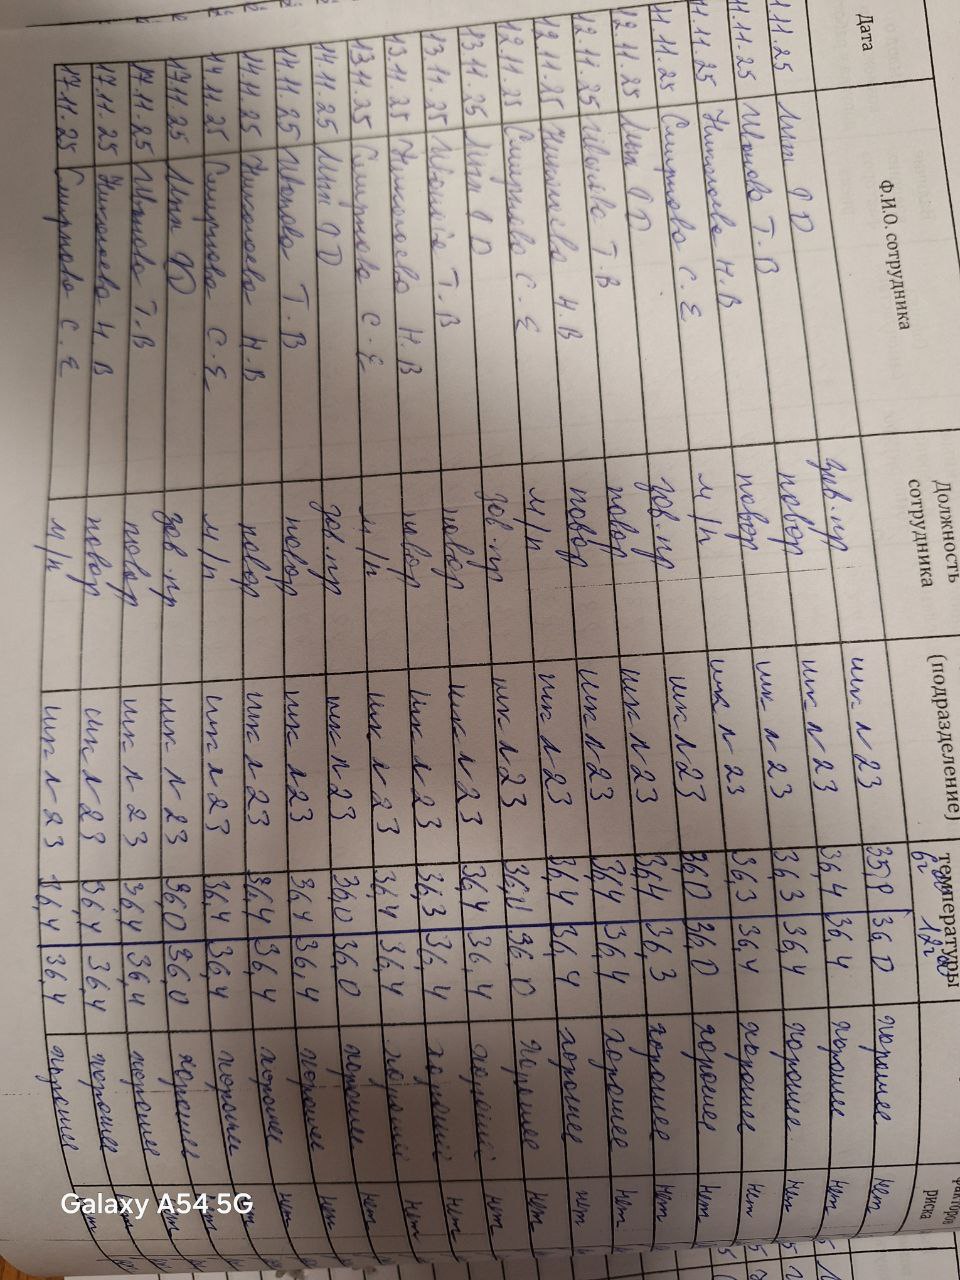 Дата Ф.И.О. сотрудника Должность сотрудника (подразделение) температуры факторов риска
11.11.25 О D зав.пр шк n 23 35,8 36,0 хорошее нет
11.11.25 Иванова Т.В повар шк n 23 36,4 36,4 хорошее нет
11.11.25 Николаева Н.В повар шк n 23 36,3 36,4 хорошее нет
11.11.25 Смирнова С.Е м/п шк n 23 36,3 36,4 хорошее нет
12.11.25 О D зав.пр шк n 23 36,0 36,0 хорошее нет
12.11.25 Иванова Т.В повар шк n 23 36,4 36,3 хорошее нет
12.11.25 Николаева Н.В повар шк n 23 36,4 36,4 хорошее нет
12.11.25 Смирнова С.Е м/п шк n 23 36,4 36,4 хорошее нет
13.11.25 О D зав.пр шк n 23 36,0 36,0 хорошее нет
13.11.25 Иванова Т.В повар шк n 23 36,4 36,4 нет
13.11.25 Николаева Н.В повар шк n 23 36,3 36,4 нет
13.11.25 Смирнова С.Е м/п шк n 23 36,4 36,4 нет
14.11.25 О D зав.пр шк n 23 36,0 36,0 хорошее нет
14.11.25 Иванова Т.В повар шк n 23 36,4 36,4 хорошее нет
14.11.25 Николаева Н.В повар шк n 23 36,4 36,4 хорошее нет
14.11.25 Смирнова С.Е м/п шк n 23 36,4 36,4 хорошее нет
17.11.25 О D зав.пр шк n 23 36,0 36,0 хорошее нет
17.11.25 Иванова Т.В повар шк n 23 36,4 36,4 хорошее нет
17.11.25 Николаева Н.В повар шк n 23 36,4 36,4 хорошее нет
17.11.25 Смирнова С.Е м/п шк n 23 36,4 36,4 хорошее нет
Galaxy A54 5G